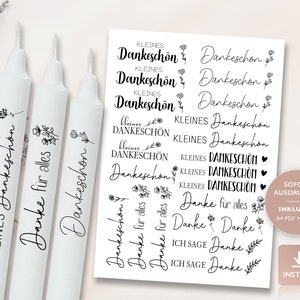 KLEINES
Dankeschön
KLEINES
Dankeschön
KLEINES
Dankeschön
kleines
DANKESCHÖN
kleines
DANKESCHÖN
Dankeschön
Dankeschön
Dankeschön
Danke für alles
Danke für alles
Dankeschön
Dankeschön
Dankeschön
KLEINES Dankeschön
KLEINES Dankeschön
KLEINES DANKESCHÖN
KLEINES DANKESCHÖN
KLEINES DANKESCHÖN
Danke für alles
Danke
Danke
ICH SAGE Danke
ICH SAGE Danke
KLEINES Dankeschön
Danke für alles
Dankeschön
SOFO
AUSDRU
INKLU
A4 PDF +
INST